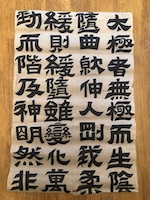 太極者無極而生陰
隨曲就伸人剛我柔
緩則緩隨雖變化萬
勁而階及神明然非